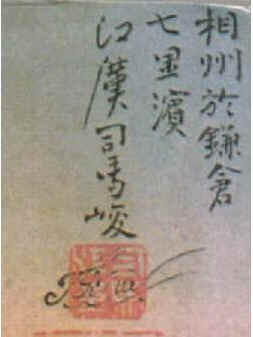 相州於鎌倉
七里濵
江漢司馬峻